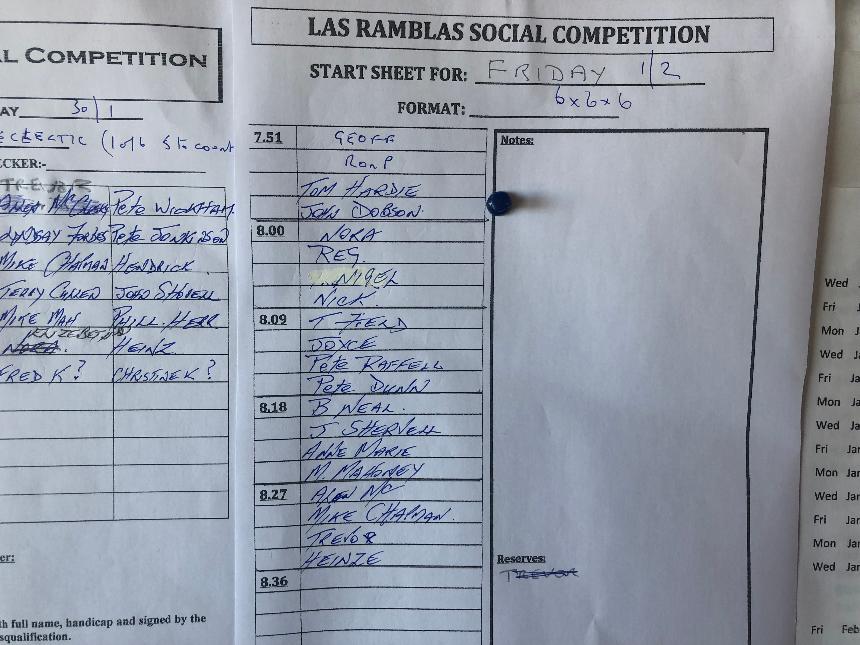 L COMPETITION
AY 30/1
ECLECTIC (1 of 6 5 to count
CKER:-
TREVOR
Pete WICKHAM
LYNDSAY FORBES Pete JONKINSON
MIKE CHAPMAN HENDRICK
TERRY CULLEN JOHN SHOVELL
MIKE MAH PHILL HERR
HEINZ
FRED K? CHRSTINE K?
er:
th full name, handicap and signed by the
squalification.
LAS RAMBLAS SOCIAL COMPETITION
START SHEET FOR: FRIDAY 1/2
FORMAT: 6x6x6
7.51 GEOFF
RON P
TOM HARDIE
JOHN DOBSON
8.00 NORA
REG.
NIGEL
NICK
8.09 T FIELD
JOYCE
Pete RAFFELL
Pete DUNN
8.18 B NEAL.
J SHERVELL
ANNE MARIE
M. MAHONEY
8.27 ALAN MC
MIKE CHAPMAN.
TREVOR
HEINZE
8.36
Notes:
Reserves:
TREVOR
Wed J
Fri J
Mon J
Wed Ja
Fri Ja
Mon Ja
Wed Ja
Fri Jar
Mon Jar
Wed Jar
Fri Jar
Mon Jar
Wed Jar
Fri Feb